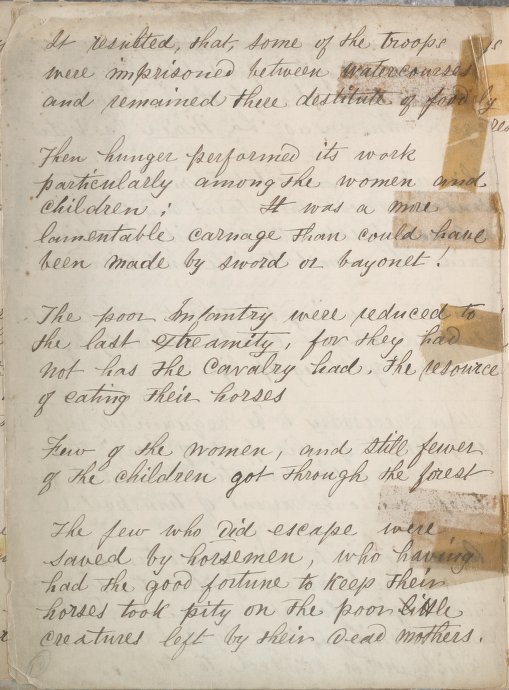 It resulted, that, some of the troops
were imprisoned between watercourses
and remained there destitute of food
Then hunger performed its work
particularly among the women and
children ; It was a more
lamentable carnage than could have
been made by sword or bayonet !
The poor Infantry were reduced to
the last extreamity, for they had
not has the Cavalry had. the resource
of eating their horses
Few of the women, and still fewer
of the children got through the forest
The few who did escape were
saved by horsemen, who having
had the good fortune to keep their
horses took pity on the poor little
creatures left by their dead mothers.